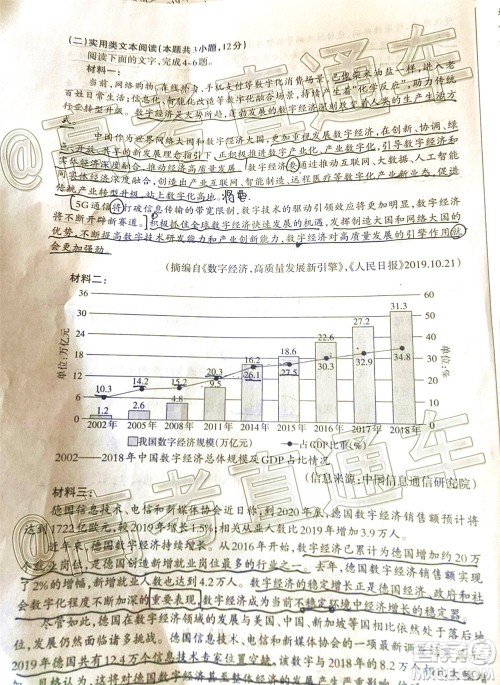 (二)实用类文本阅读(本题共3小题,12分)
阅读下面的文字,完成4~6题。
材料一:
当前,网络购物、在线挂号、手机支付等数字化消费场景,已像柴米油盐一样,进入老
百姓日常生活;信息化、智能化改造等数字化融合场景,持续产生着“化学反应”,助力传统
行业转型升级。数字经济是大势所趋,蓬勃发展的数字经济深刻改变着人类的生产生活方
式。
中国作为世界网络大国和数字经济大国,更加重视发展数字经济,在创新、协调、绿
色、开放、共享的新发展理念指引下,正积极推进数字产业化、产业数字化,引导数字经济和
实体经济深度融合,推动经济高质量发展。数字经济要通过推动互联网、大数据、人工智能
同实体经济深度融合,创造出产业互联网、智能制造、远程医疗等数字化产业新业态,促进
传统产业转型升级,站上数字化高地。
5G通信将打破信息传输的带宽限制,数字技术的驱动引领效应将更加明显,数字经济
将不断开辟新赛道。积极抓住全球数字经济快速发展的机遇,发挥制造大国和网络大国的
优势,不断提高数字技术研发能力和产业创新能力,数字经济对高质量发展的引擎作用就
会更加强劲。
(摘编自《数字经济,高质量发展新引擎》,《人民日报》2019.10.21)
材料二:
单位:万亿元
36
30
24
18
12
6
0
单位:%
60
50
40
30
20
10
0
10.3 14.2 15.2 20.3 26.1 27.5 30.3 32.9 34.8
1.2 2.6 4.8 9.5 16.2 18.6 22.6 27.2 31.3
2002年 2005年 2008年 2011年 2014年 2015年 2016年 2017年 2018年
我国数字经济规模(万亿元) 占GDP比重(%)
2002——2018年中国数字经济总体规模及GDP占比情况
(信息来源:中国信息通信研究院)
材料三:
德国信息技术、电信和新媒体协会近日称,到2020年底,德国数字经济销售额预计将
达到1722亿欧元,较2019年增长1.5%;相关从业人数比2019年增加3.9万人。
近年来,德国数字经济持续增长。从2016年开始,数字经济已累计为德国增加约20万
个就业岗位,是德国创造新增就业岗位最多的行业之一。去年,德国数字经济销售额实现
了2%的增幅,新增就业人数也达到4.2万人。数字经济的稳定增长正是德国经济、政府和社
会数字化程度不断加深的重要表现,数字经济成为当前不稳定环境中经济增长的稳定器。
尽管如此,德国在数字经济领域的发展与美国、中国、新加坡等国相比依然处于落后地
位,发展仍然面临诸多挑战。德国信息技术、电信和新媒体协会的一项最新调
2019年德国共有12.4万个信息技术专家位置空缺,该数字与2018年的8.2万个
贝格认为,这将对德国数字经济甚至整体经济的发展产生严重影响
@高考直通车
@高考直通车